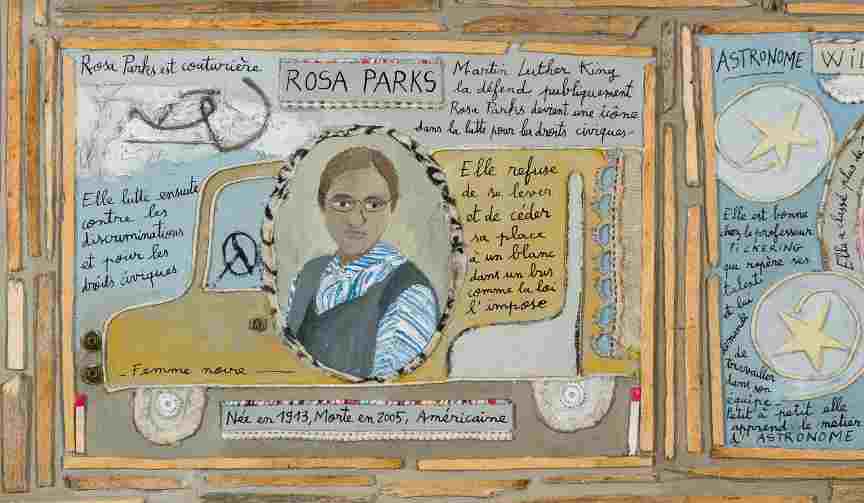 Rosa Parks est couturière
ROSA PARKS
Martin Luther King
la défend publiquement
Rosa Parks devient une icône
dans la lutte pour les droits civiques-
Elle lutte ensuite
contre les
discriminations
et pour les
droits civiques
Elle refuse
de se lever
et de céder
sa place
à un blanc
dans un bus
comme la loi
l'impose
-Femme noire-
Née en 1913, Morte en 2005, Américaine
ASTRONOME
Elle est bonne
chez le professeur
PICKERING
qui repère ses
talents
et lui
demande
de
travailler
dans son
équipe
Petit à petit elle
apprend le métier
d'ASTRONOME
Elle a classé plus